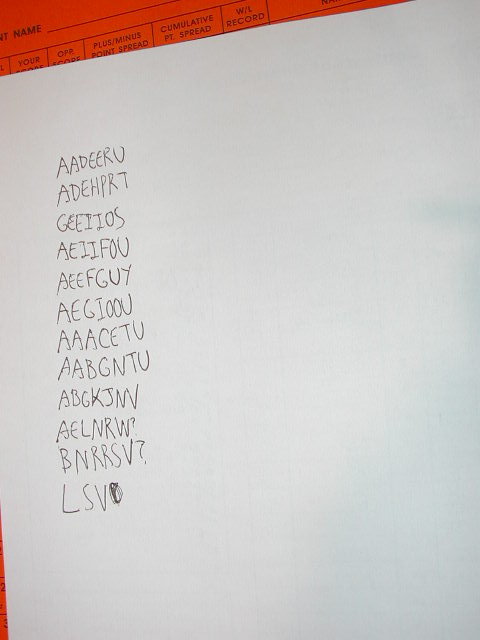 NT NAME
YOUR SCORE
OPP. SCORE
PLUS/MINUS POINT SPREAD
CUMULATIVE PT. SPREAD
W/L RECORD
AADEERU
ADEHPRT
GEEIIOS
AEIIFOU
AEEFGUY
AEGIOOU
AAACETU
AABGNTU
ABGKJNV
AELNRW?
BNRRSV?
LSV